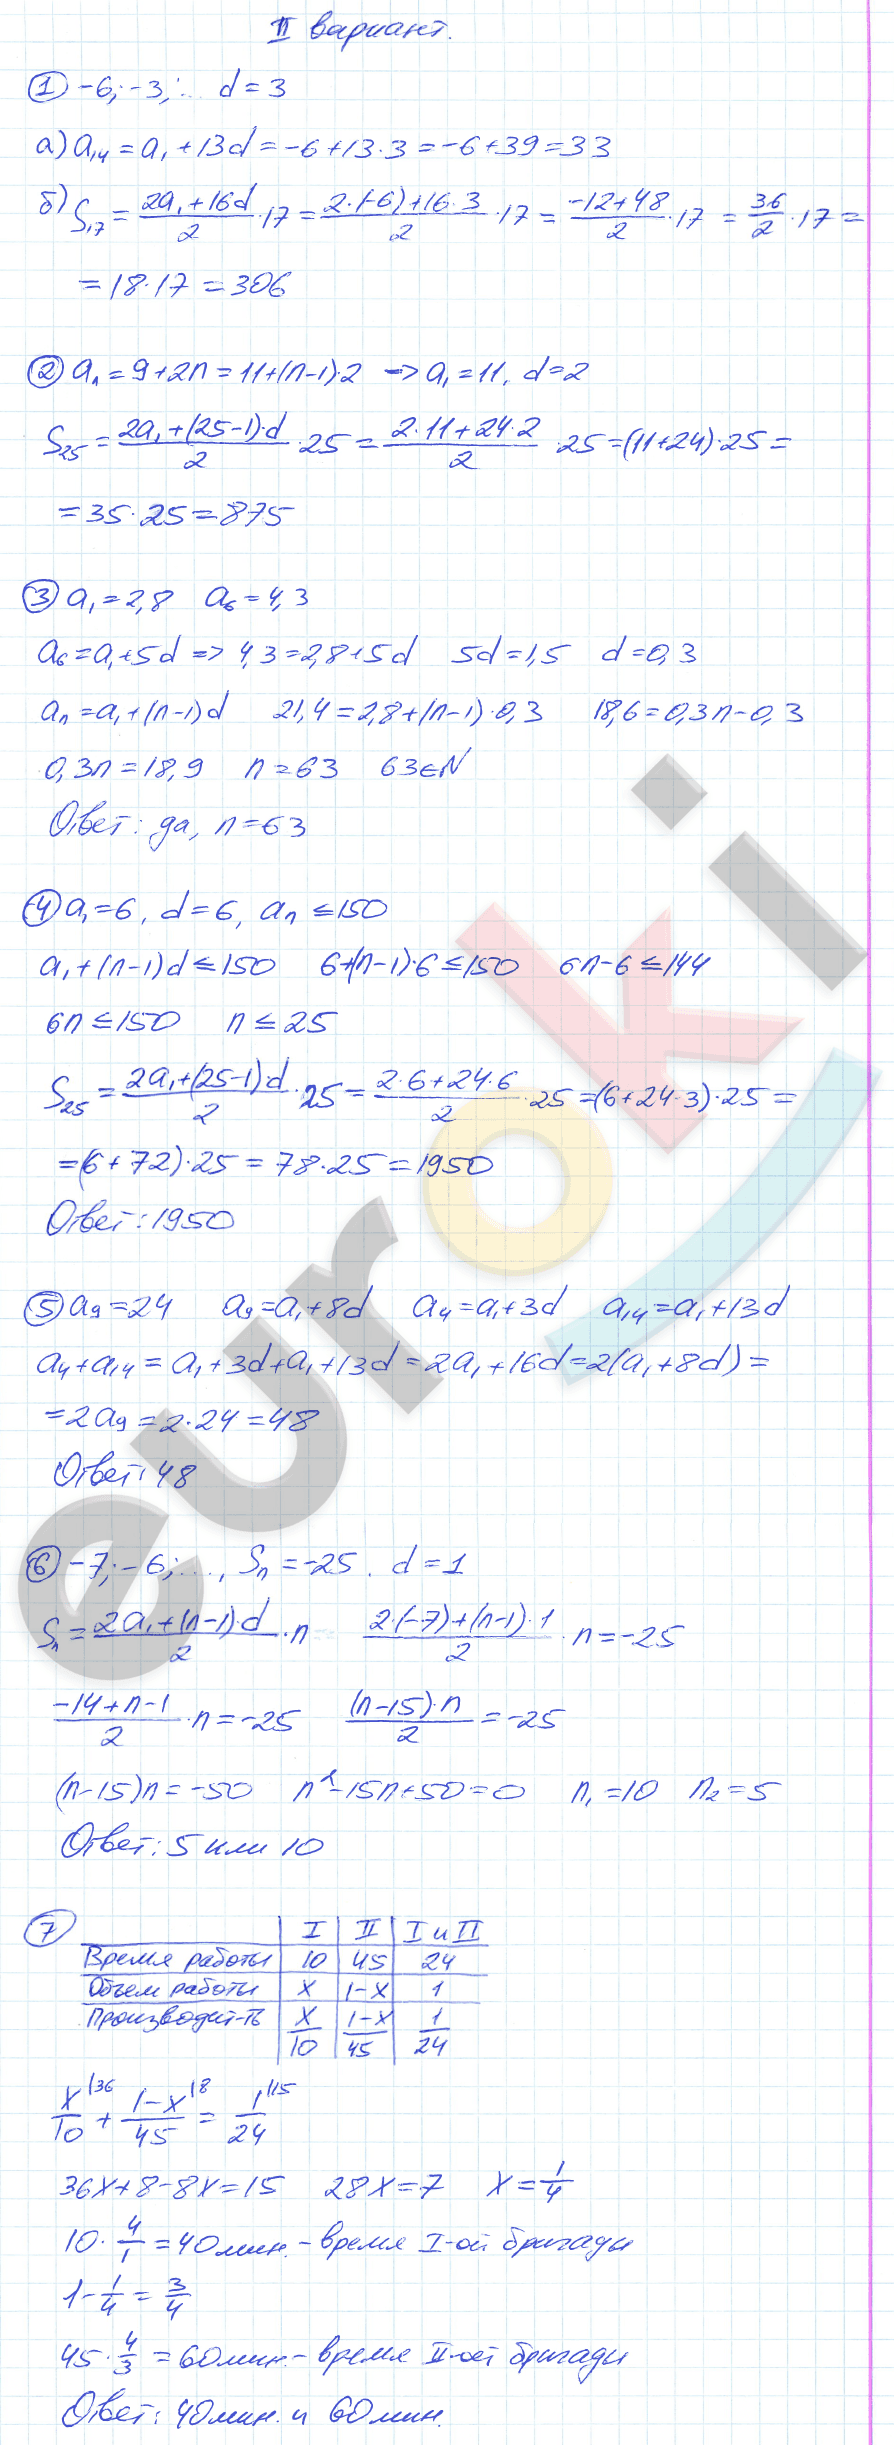 II вариант.
① -6; -3; ... d = 3
а) a₁₄ = a₁ + 13d = -6 + 13·3 = -6 + 39 = 33
б) S₁₇ = (2a₁ + 16d)/2 · 17 = (2·(-6) + 16·3)/2 · 17 = (-12 + 48)/2 · 17 = 36/2 · 17 =
= 18·17 = 306
② aₙ = 9 + 2n = 11 + (n-1)·2 => a₁ = 11, d = 2
S₂₅ = (2a₁ + (25-1)·d)/2 · 25 = (2·11 + 24·2)/2 · 25 = (11 + 24)·25 =
= 35·25 = 875
③ a₁ = 2,8 a₆ = 4,3
a₆ = a₁ + 5d => 4,3 = 2,8 + 5d 5d = 1,5 d = 0,3
aₙ = a₁ + (n-1)d 21,4 = 2,8 + (n-1)·0,3 18,6 = 0,3n - 0,3
0,3n = 18,9 n = 63 63 ∈ N
Ответ: да, n = 63
④ a₁ = 6, d = 6, aₙ ≤ 150
a₁ + (n-1)d ≤ 150 6 + (n-1)·6 ≤ 150 6n - 6 ≤ 144
6n ≤ 150 n ≤ 25
S₂₅ = (2a₁ + (25-1)d)/2 · 25 = (2·6 + 24·6)/2 · 25 = (6 + 24·3)·25 =
= (6 + 72)·25 = 78·25 = 1950
Ответ: 1950
⑤ a₉ = 24 a₉ = a₁ + 8d a₄ = a₁ + 3d a₁₄ = a₁ + 13d
a₄ + a₁₄ = a₁ + 3d + a₁ + 13d = 2a₁ + 16d = 2(a₁ + 8d) =
= 2a₉ = 2·24 = 48
Ответ: 48
⑥ -7; -6; ..., Sₙ = -25. d = 1
Sₙ = (2a₁ + (n-1)·d)/2 · n (2·(-7) + (n-1)·1)/2 · n = -25
(-14 + n - 1)/2 · n = -25 ((n-15)·n)/2 = -25
(n-15)n = -50 n² - 15n + 50 = 0 n₁ = 10 n₂ = 5
Ответ: 5 или 10
⑦ I II I и II
Время работы 10 45 24
Объем работы x 1-x 1
Производит-ть x/10 (1-x)/45 1/24
x/10 |36 + (1-x)/45 |8 = 1/24 |15
36x + 8 - 8x = 15 28x = 7 x = 1/4
10 · 4/1 = 40 мин. - время I-ой бригады
1 - 1/4 = 3/4
45 · 4/3 = 60 мин. - время II-ой бригады
Ответ: 40 мин. и 60 мин.
euroki